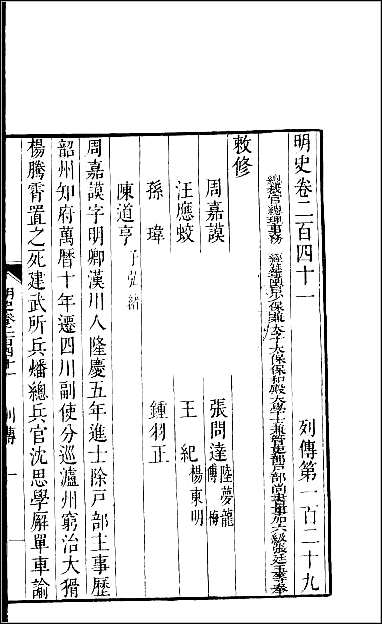 明史卷二百四十一　列傳第一百二十九
總裁官總理事務　經筵講官少保兼太子太保保和殿大學士兼管吏部戶部尚書事加六級張廷玉等奉
敕修
周嘉謨　張問達 陸夢龍 傅梅
汪應蛟　王紀 楊東明
孫瑋　鍾羽正
陳道亨 子弘緒
周嘉謨字明卿漢川人隆慶五年進士除戶部主事歷
韶州知府萬曆十年遷四川副使分巡瀘州窮治大猾
楊騰霄置之死建武所兵燔總兵官沈思學廨單車諭
明史卷二百四十一　列傳　一